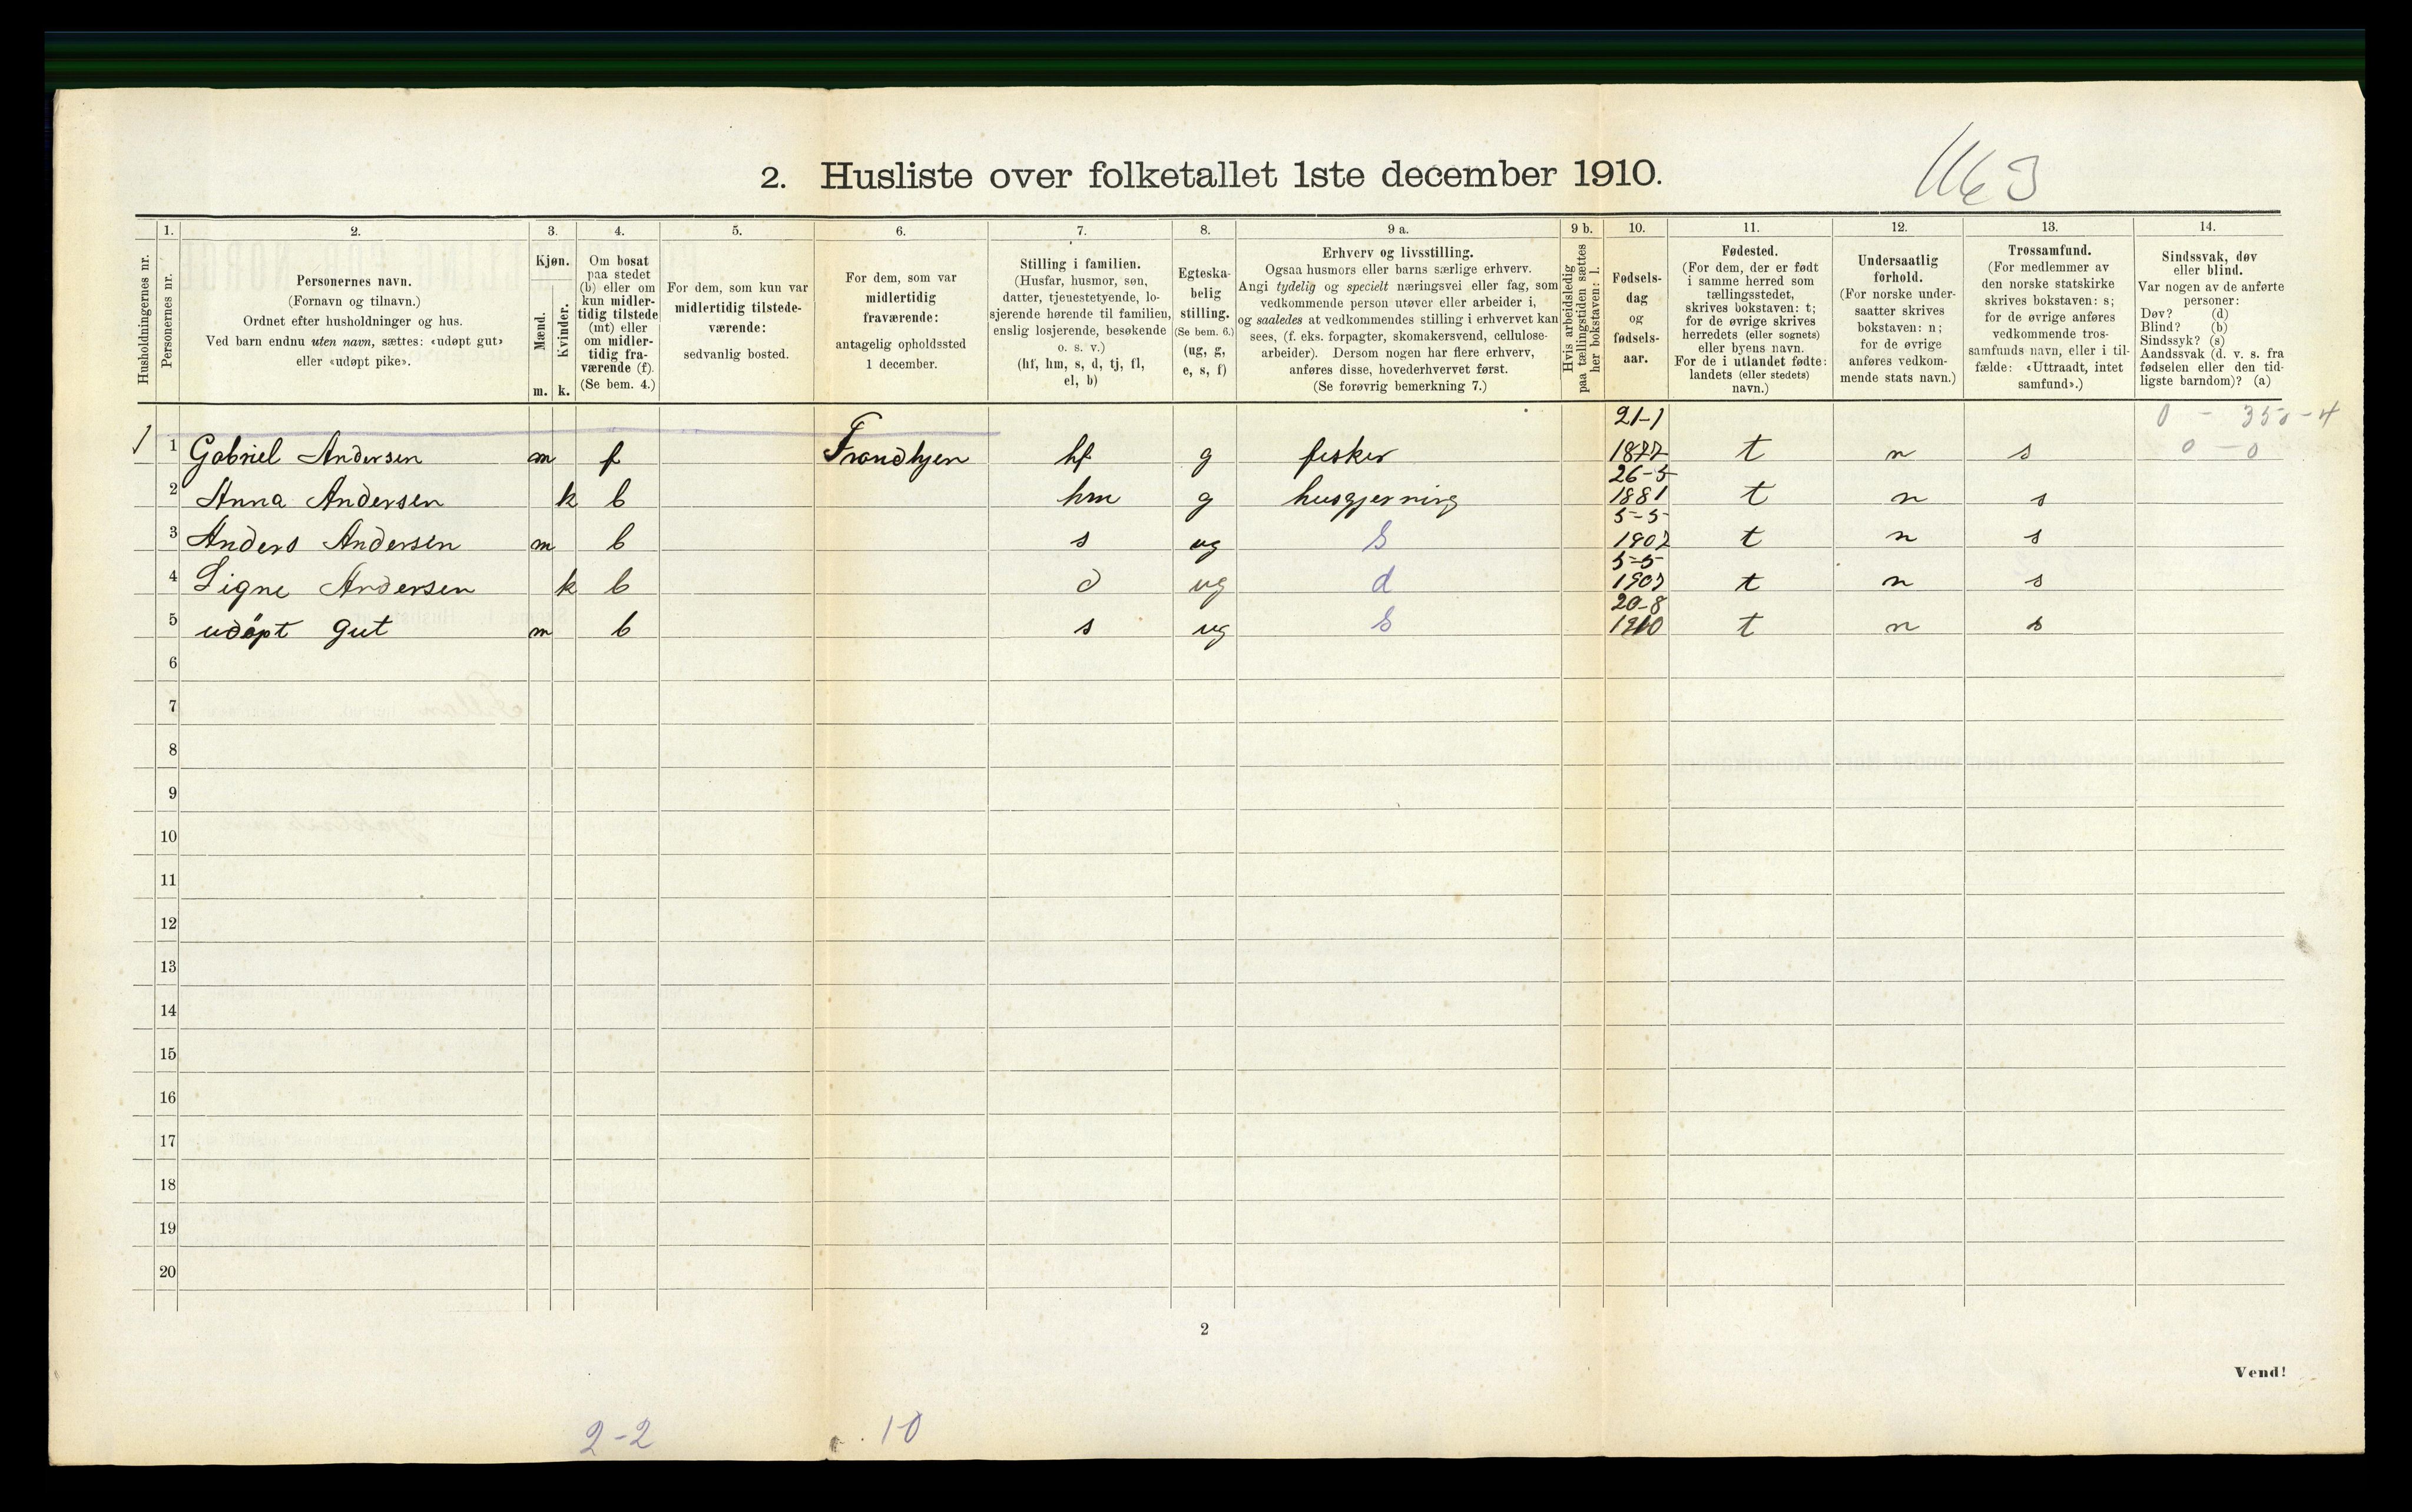 2. Husliste over folketallet 1ste december 1910.
Husholdningernes nr.
1.
Personernes nr.
2.
Personernes navn.
(Fornavn og tilnavn.)
Ordnet efter husholdninger og hus.
Ved barn endnu uten navn, sættes: «udøpt gut»
eller «udøpt pike».
3.
Kjøn.
Mænd.
Kvinder.
m. k.
4.
Om bosat
paa stedet
(b) eller om
kun midler-
tidig tilstede
(mt) eller
om midler-
tidig fra-
værende (f).
(Se bem. 4.)
5.
For dem, som kun var
midlertidig tilstede-
værende:
sedvanlig bosted.
6.
For dem, som var
midlertidig
fraværende:
antagelig opholdssted
1 december.
7.
Stilling i familien.
(Husfar, husmor, søn,
datter, tjenestetyende, lo-
sjerende hørende til familien,
enslig losjerende, besøkende
o. s. v.)
(hf, hm, s, d, tj, fl,
el, b)
8.
Egteska-
belig
stilling.
(Se bem. 6.)
(ug, g,
e, s, f)
9 a.
Erhverv og livsstilling.
Ogsaa husmors eller barns særlige erhverv.
Angi tydelig og specielt næringsvei eller fag, som
vedkommende person utøver eller arbeider i,
og saaledes at vedkommendes stilling i erhvervet kan
sees, (f. eks. forpagter, skomakersvend, cellulose-
arbeider). Dersom nogen har flere erhverv,
anføres disse, hovederhvervet først.
(Se forøvrig bemerkning 7.)
9 b.
Hvis arbeidsledig
paa tællingstiden sættes
her bokstaven: l.
10.
Fødsels-
dag
og
fødsels-
aar.
11.
Fødested.
(For dem, der er født
i samme herred som
tællingsstedet,
skrives bokstaven: t;
for de øvrige skrives
herredets (eller sognets)
eller byens navn.
For de i utlandet fødte:
landets (eller stedets)
navn.)
12.
Undersaatlig
forhold.
(For norske under-
saatter skrives
bokstaven: n;
for de øvrige
anføres vedkom-
mende stats navn.)
13.
Trossamfund.
(For medlemmer av
den norske statskirke
skrives bokstaven: s;
for de øvrige anføres
vedkommende tros-
samfunds navn, eller i til-
fælde: «Uttraadt, intet
samfund».)
14.
Sindssvak, døv
eller blind.
Var nogen av de anførte
personer:
Døv? (d)
Blind? (b)
Sindssyk? (s)
Aandssvak (d. v. s. fra
fødselen eller den tid-
ligste barndom)? (a)
21-1
1 1 Gabriel Andersen m f Trondhjen hf g fisker 1877 t n s 0 - 0
26-5
2 Anna Andersen k b hm g husgjerning 1881 t n s
5-5
3 Anders Andersen m b s ug s 1907 t n s
5-5
4 Signe Andersen k b d ug d 1907 t n s
20-8
5 udöpt gut m b s ug s 1910 t n s
6
7
8
9
10
11
12
13
14
15
16
17
18
19
20
2
Vend!
2-2 10